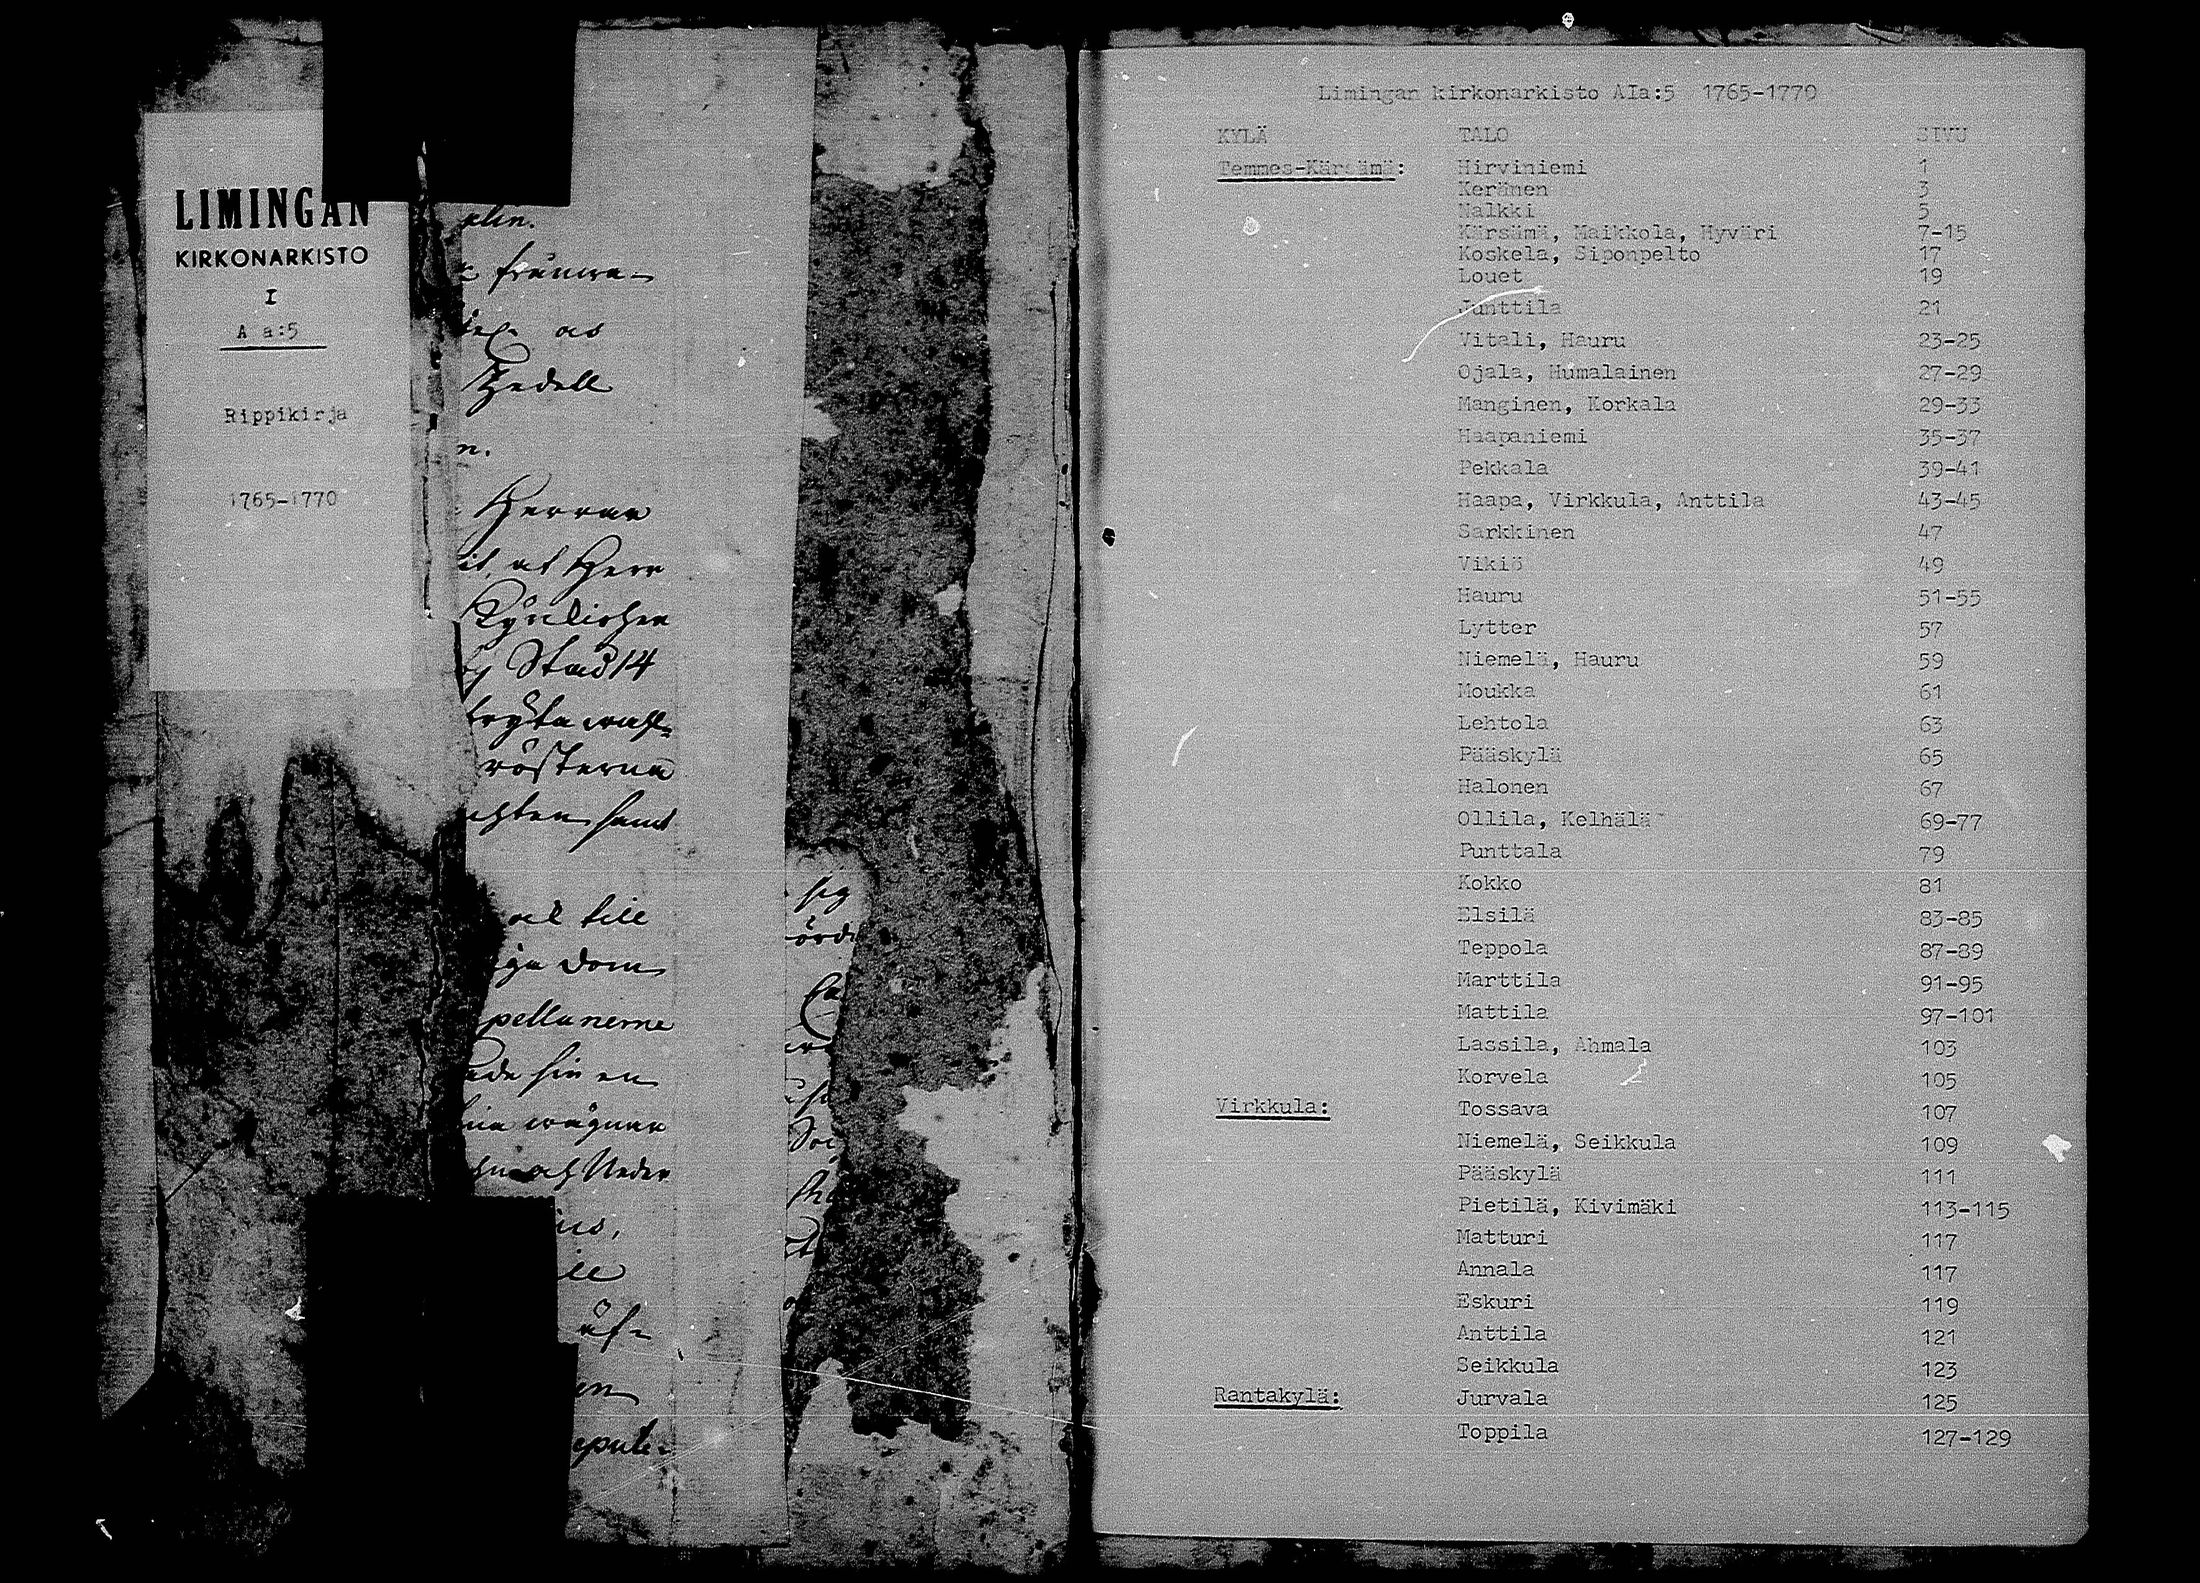 LIMINGAN
KIRKONARKISTO
I
A a:5
Rippikirja
1765-1770
as
Zedell
n.
Herrar
at Herr
Stad 14
rösterna
samt
till
dom
pellanerne
sin en
och Neder
sig
Limingan kirkonarkisto AIa:5 1765-1770
KYLÄ TALO SIVU
Temmes-Kärsämä: Hirviniemi 1
Keränen 3
Nalkki 5
Kärsämä, Maikkola, Hyväri 7-15
Koskela, Siponpelto 17
Louet 19
Junttila 21
Vitali, Hauru 23-25
Ojala, Humalainen 27-29
Manginen, Korkala 29-33
Haapaniemi 35-37
Pekkala 39-41
Haapa, Virkkula, Anttila 43-45
Sarkkinen 47
Vikiö 49
Hauru 51-55
Lytter 57
Niemelä, Hauru 59
Moukka 61
Lehtola 63
Pääskylä 65
Halonen 67
Ollila, Kelhälä 69-77
Punttala 79
Kokko 81
Elsilä 83-85
Teppola 87-89
Marttila 91-95
Mattila 97-101
Lassila, Ahmala 103
Korvela 105
Virkkula: Tossava 107
Niemelä, Seikkula 109
Pääskylä 111
Pietilä, Kivimäki 113-115
Matturi 117
Annala 117
Eskuri 119
Anttila 121
Seikkula 123
Rantakylä: Jurvala 125
Toppila 127-129